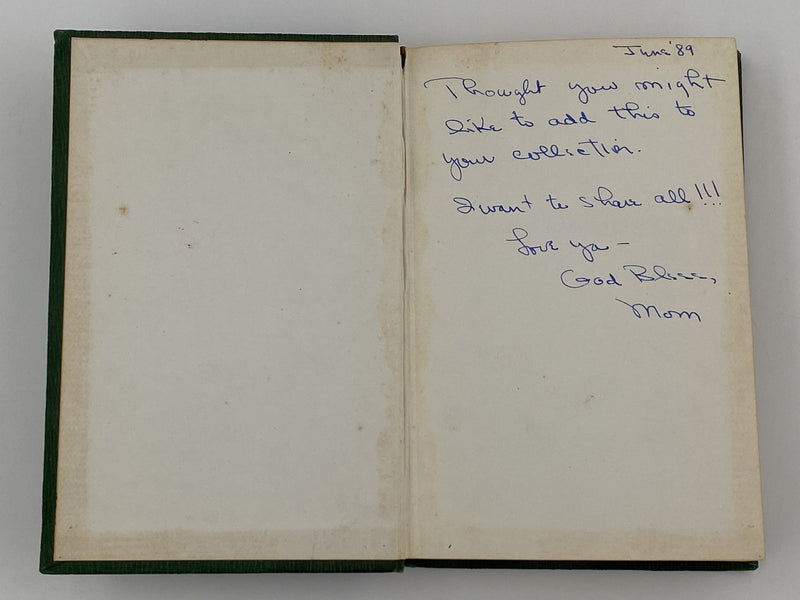 June '89
Thought you might
like to add this to
your collection.
I want to share all!!!
Love ya -
God Bless,
Mom